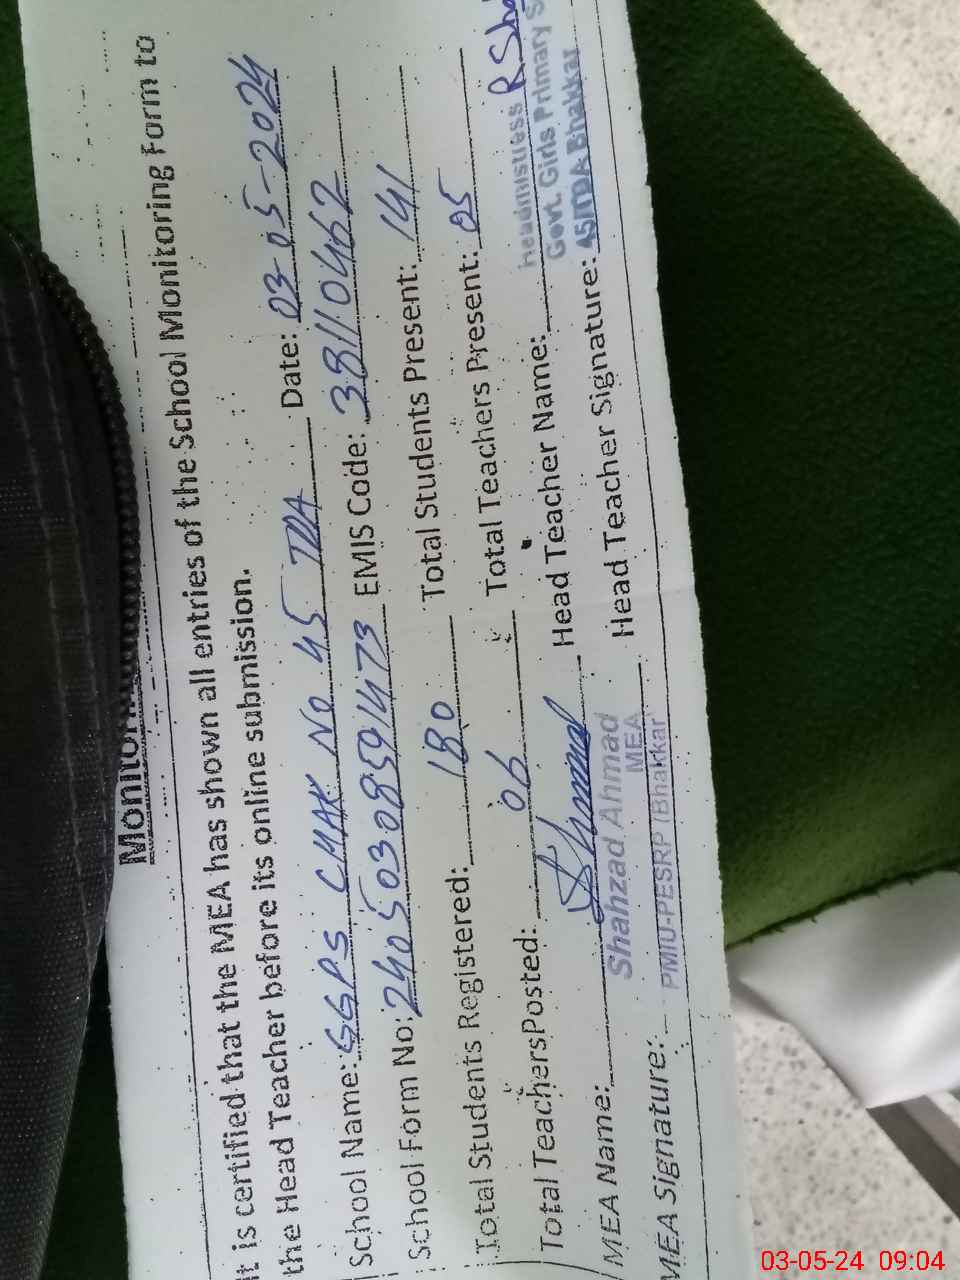 Monitoring
It is certified that the MEA has shown all entries of the School Monitoring Form to
the Head Teacher before its online submission.
School Name: GGPS CHAK No 45 TDA Date: 03-05-2024
School Form No: 24050308591473 EMIS Code: 38110462
Total Students Registered: 180 Total Students Present: 141
Total TeachersPosted: 06 Total Teachers Present: 05
MEA Name: Head Teacher Name:
MEA Signature: Head Teacher Signature:
Shahzad Ahmad
MEA
PMIU-PESRP (Bhakkar)
Headmistress
Govt. Girls Primary S
45/TDA Bhakkar
03-05-24 09:04